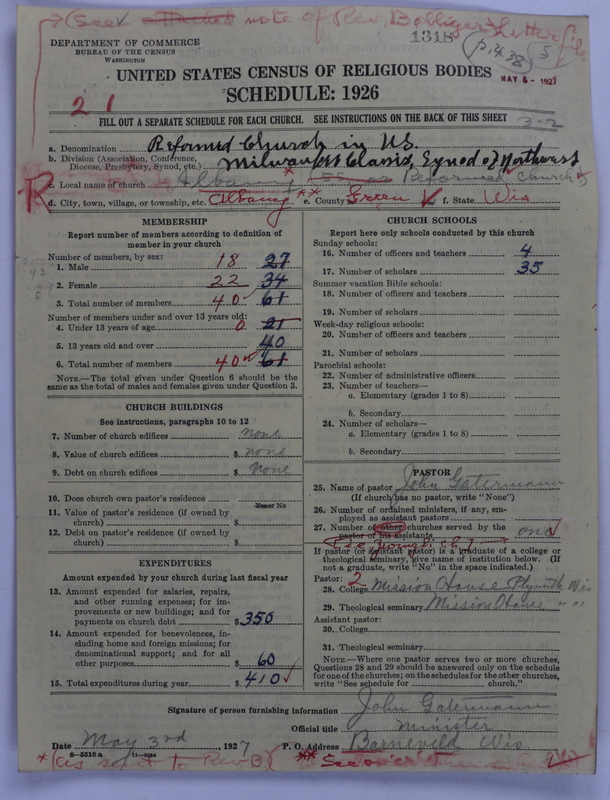 (See note of Rev. Bolliger's letter file
1318
(p. 438) 5
DEPARTMENT OF COMMERCE
BUREAU OF THE CENSUS
WASHINGTON
MAY 5 - 1927
UNITED STATES CENSUS OF RELIGIOUS BODIES
SCHEDULE: 1926
2 1
FILL OUT A SEPARATE SCHEDULE FOR EACH CHURCH. SEE INSTRUCTIONS ON THE BACK OF THIS SHEET
3-2
a. Denomination Reformed Church in U.S.
b. Division (Association, Conference, Diocese, Presbytery, Synod, etc.) Milwaukee Classis, Synod of Northwest
R c. Local name of church Albany * Reformed Church
d. City, town, village, or township, etc. Albany ** e. County Green f. State Wis
MEMBERSHIP
Report number of members according to definition of member in your church
Number of members, by sex:
1. Male 18 27
2. Female 22 34
3. Total number of members 40 61
Number of members under and over 13 years old:
4. Under 13 years of age 0 21
5. 13 years old and over 40
6. Total number of members 40 61
NOTE.—The total given under Question 6 should be the same as the total of males and females given under Question 3.
CHURCH BUILDINGS
See instructions, paragraphs 10 to 12
7. Number of church edifices none
8. Value of church edifices $ none
9. Debt on church edifices $ None
10. Does church own pastor's residence
Yes or No
11. Value of pastor's residence (if owned by church) $
12. Debt on pastor's residence (if owned by church) $
EXPENDITURES
Amount expended by your church during last fiscal year
13. Amount expended for salaries, repairs, and other running expenses; for improvements or new buildings; and for payments on church debt $ 350
14. Amount expended for benevolences, including home and foreign missions; for denominational support; and for all other purposes $ 60
15. Total expenditures during year $ 410
CHURCH SCHOOLS
Report here only schools conducted by this church
Sunday schools:
16. Number of officers and teachers 4
17. Number of scholars 35
Summer vacation Bible schools:
18. Number of officers and teachers
19. Number of scholars
Week-day religious schools:
20. Number of officers and teachers
21. Number of scholars
Parochial schools:
22. Number of administrative officers
23. Number of teachers—
a. Elementary (grades 1 to 8)
b. Secondary
24. Number of scholars—
a. Elementary (grades 1 to 8)
b. Secondary
PASTOR
25. Name of pastor John Gatermann
(If church has no pastor, write "None")
26. Number of ordained ministers, if any, employed as assistant pastors
27. Number of other churches served by the pastor or his assistants one
If pastor (or assistant pastor) is a graduate of a college or theological seminary, give name of institution below. (If not a graduate, write "No" in the space indicated.)
Pastor: 2
28. College Mission House Plymouth Wis
29. Theological seminary Mission House " "
Assistant pastor:
30. College
31. Theological seminary
NOTE.—Where one pastor serves two or more churches, Questions 28 and 29 should be answered only on the schedule for one of the churches; on the schedules for the other churches, write "See schedule for ______ church."
Signature of person furnishing information John Gatermann
Official title Minister
Date May 3rd, 1927 P. O. Address Barneveld Wis
8-5518 a
*(as sent to Rev B) ** See